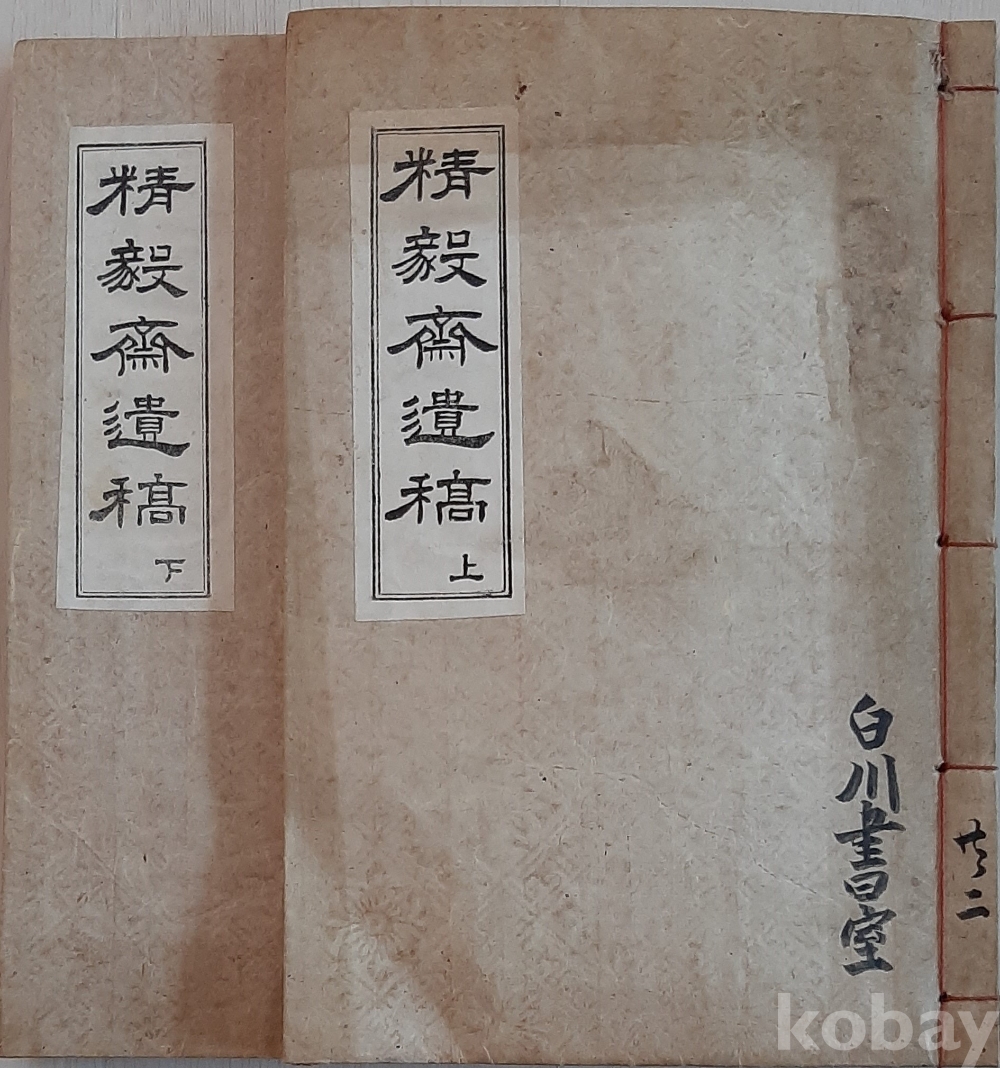 精毅齋遺稿
上
白川書室
共二
精毅齋遺稿
下
kobay